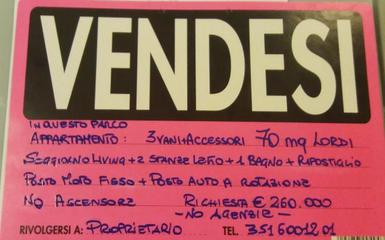 VENDESI
IN QUESTO PARCO
APPARTAMENTO: 3 VANI + ACCESSORI 70 mq LORDI
SOGGIORNO LIVING + 2 STANZE LETTO + 1 BAGNO + RIPOSTIGLIO
POSTO MOTO FISSO + POSTO AUTO A ROTAZIONE
NO ASCENSORE RICHIESTA € 260.000
- NO AGENZIE -
RIVOLGERSI A: PROPRIETARIO TEL. 351 6001201